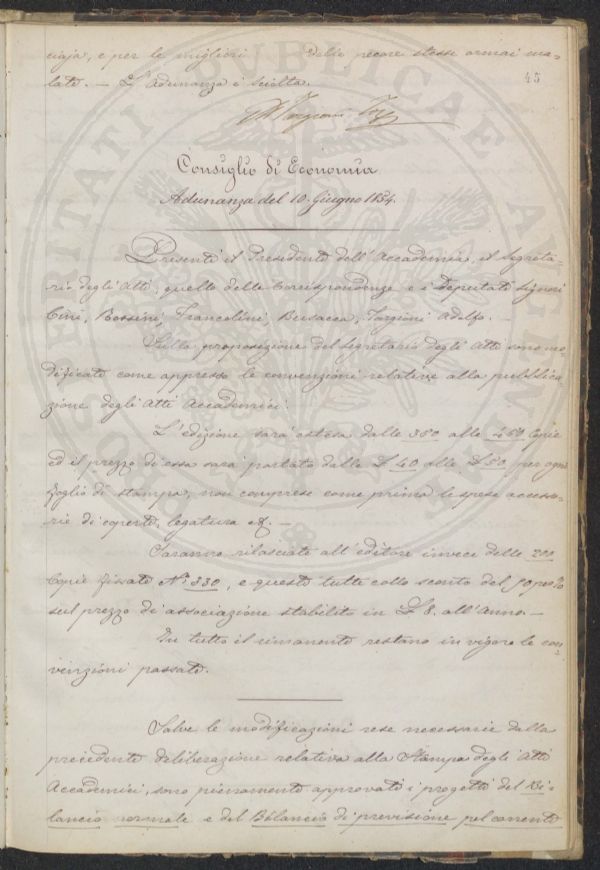 ciaja, e per le migliori delle pecore stesse ormai ma-
late. — L'adunanza è sciolta.
45
Consiglio di Economia
Adunanza del 10. Giugno 1854.
Presenti il Presidente dell'Accademia, il Segreta-
rio degli Atti, quello delle Corrispondenze e i Deputati Signori
Cini, Bossini, Francolini, Busacca, Targioni Adolfo. —
Sulla proposizione del Segretario degli Atti sono mo-
dificate come appresso le convenzioni relative alla pubblica-
zione degli Atti Accademici.
L'edizione sarà estesa dalle 350 alle 450 Copie
ed il prezzo di essa sarà portato dalle £ 40 alle £ 50 per ogni
foglio di stampa, non comprese come prima le spese accesso-
rie di coperte, legatura &. —
Saranno rilasciate all'editore invece delle 200
Copie fissate N.° 330, e queste tutte collo sconto del 50 p %
sul prezzo di associazione stabilito in £ 8. all'Anno. —
In tutto il rimanente restano in vigore le con-
venzioni passate.
Salve le modificazioni rese necessarie dalla
precedente deliberazione relativa alla Stampa degli Atti
Accademici, sono pienamente approvati i progetti del Bi-
lancio normale e del Bilancio di previsione pel corrente
PUBLICAE
PROSPERITATI